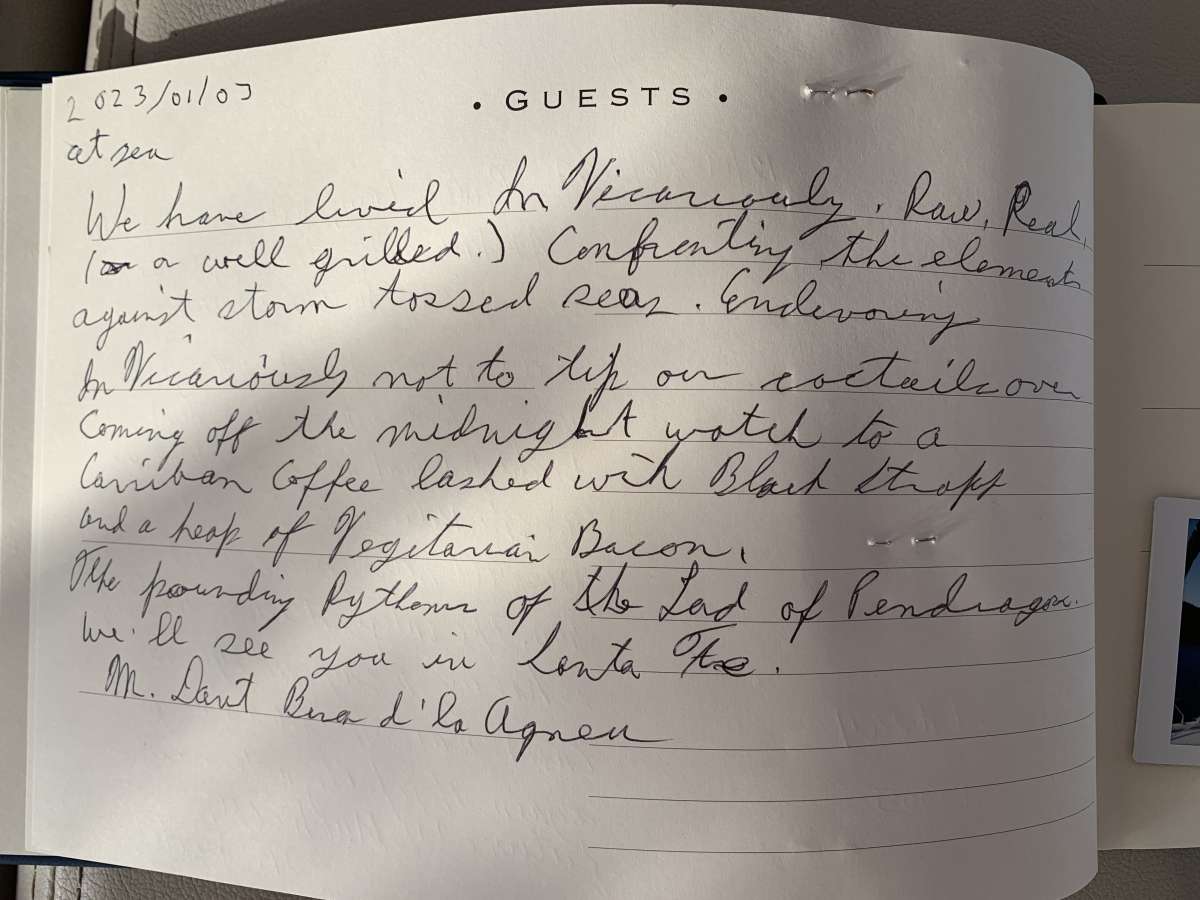 2023/01/03
• GUESTS •
at sea
We have lived In Vicariouly. Raw, Real,
(a well grilled.) Confronting the elements
against storm tossed seas. Endevoring
In Vicariously not to tip our coctails over
Coming off the midnight watch to a
Carriban Coffee lashed with Black Strapp
and a heap of Vegitarian Bacon,
The pounding Rythems of the Lad of Pendragon.
We'll see you in Santa Fe.
M. d'la Agneu